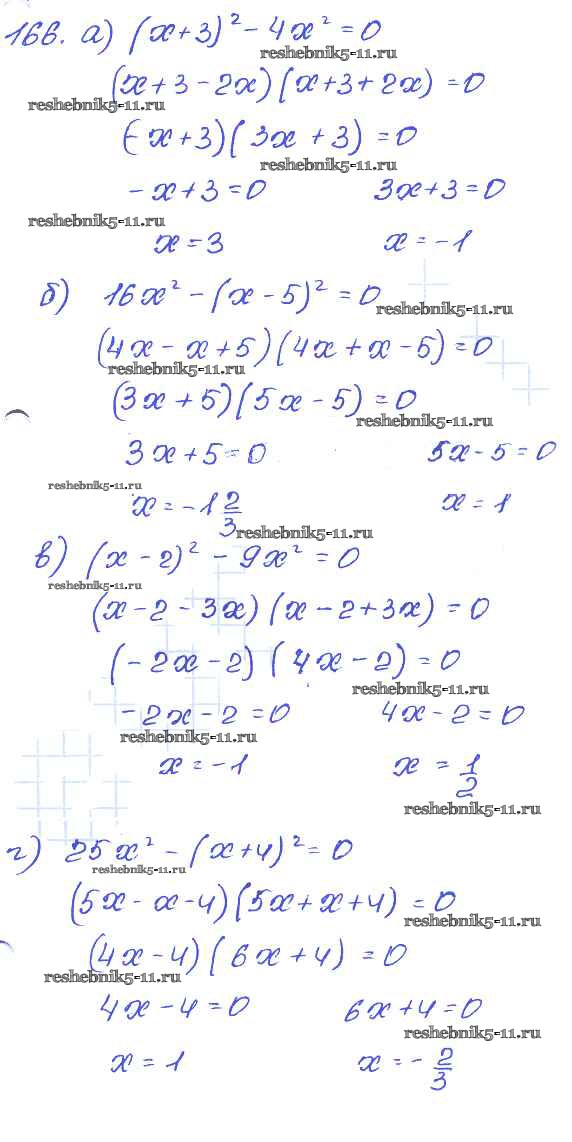 166. а) (x+3)² - 4x² = 0
reshebnik5-11.ru
(x+3-2x)(x+3+2x) = 0
reshebnik5-11.ru
(-x+3)(3x+3) = 0
reshebnik5-11.ru
-x+3=0 3x+3=0
reshebnik5-11.ru
x=3 x=-1
б) 16x² - (x-5)² = 0
reshebnik5-11.ru
(4x-x+5)(4x+x-5)=0
reshebnik5-11.ru
(3x+5)(5x-5)=0
reshebnik5-11.ru
3x+5=0 5x-5=0
reshebnik5-11.ru
x=-1 2/3 x=1
reshebnik5-11.ru
в) (x-2)² - 9x² = 0
reshebnik5-11.ru
(x-2-3x)(x-2+3x) = 0
(-2x-2)(4x-2)=0
reshebnik5-11.ru
-2x-2=0 4x-2=0
reshebnik5-11.ru
x=-1 x = 1/2
reshebnik5-11.ru
г) 25x² - (x+4)² = 0
reshebnik5-11.ru
(5x-x-4)(5x+x+4) = 0
reshebnik5-11.ru
(4x-4)(6x+4) = 0
reshebnik5-11.ru
4x-4=0 6x+4=0
reshebnik5-11.ru
x=1 x=-2/3